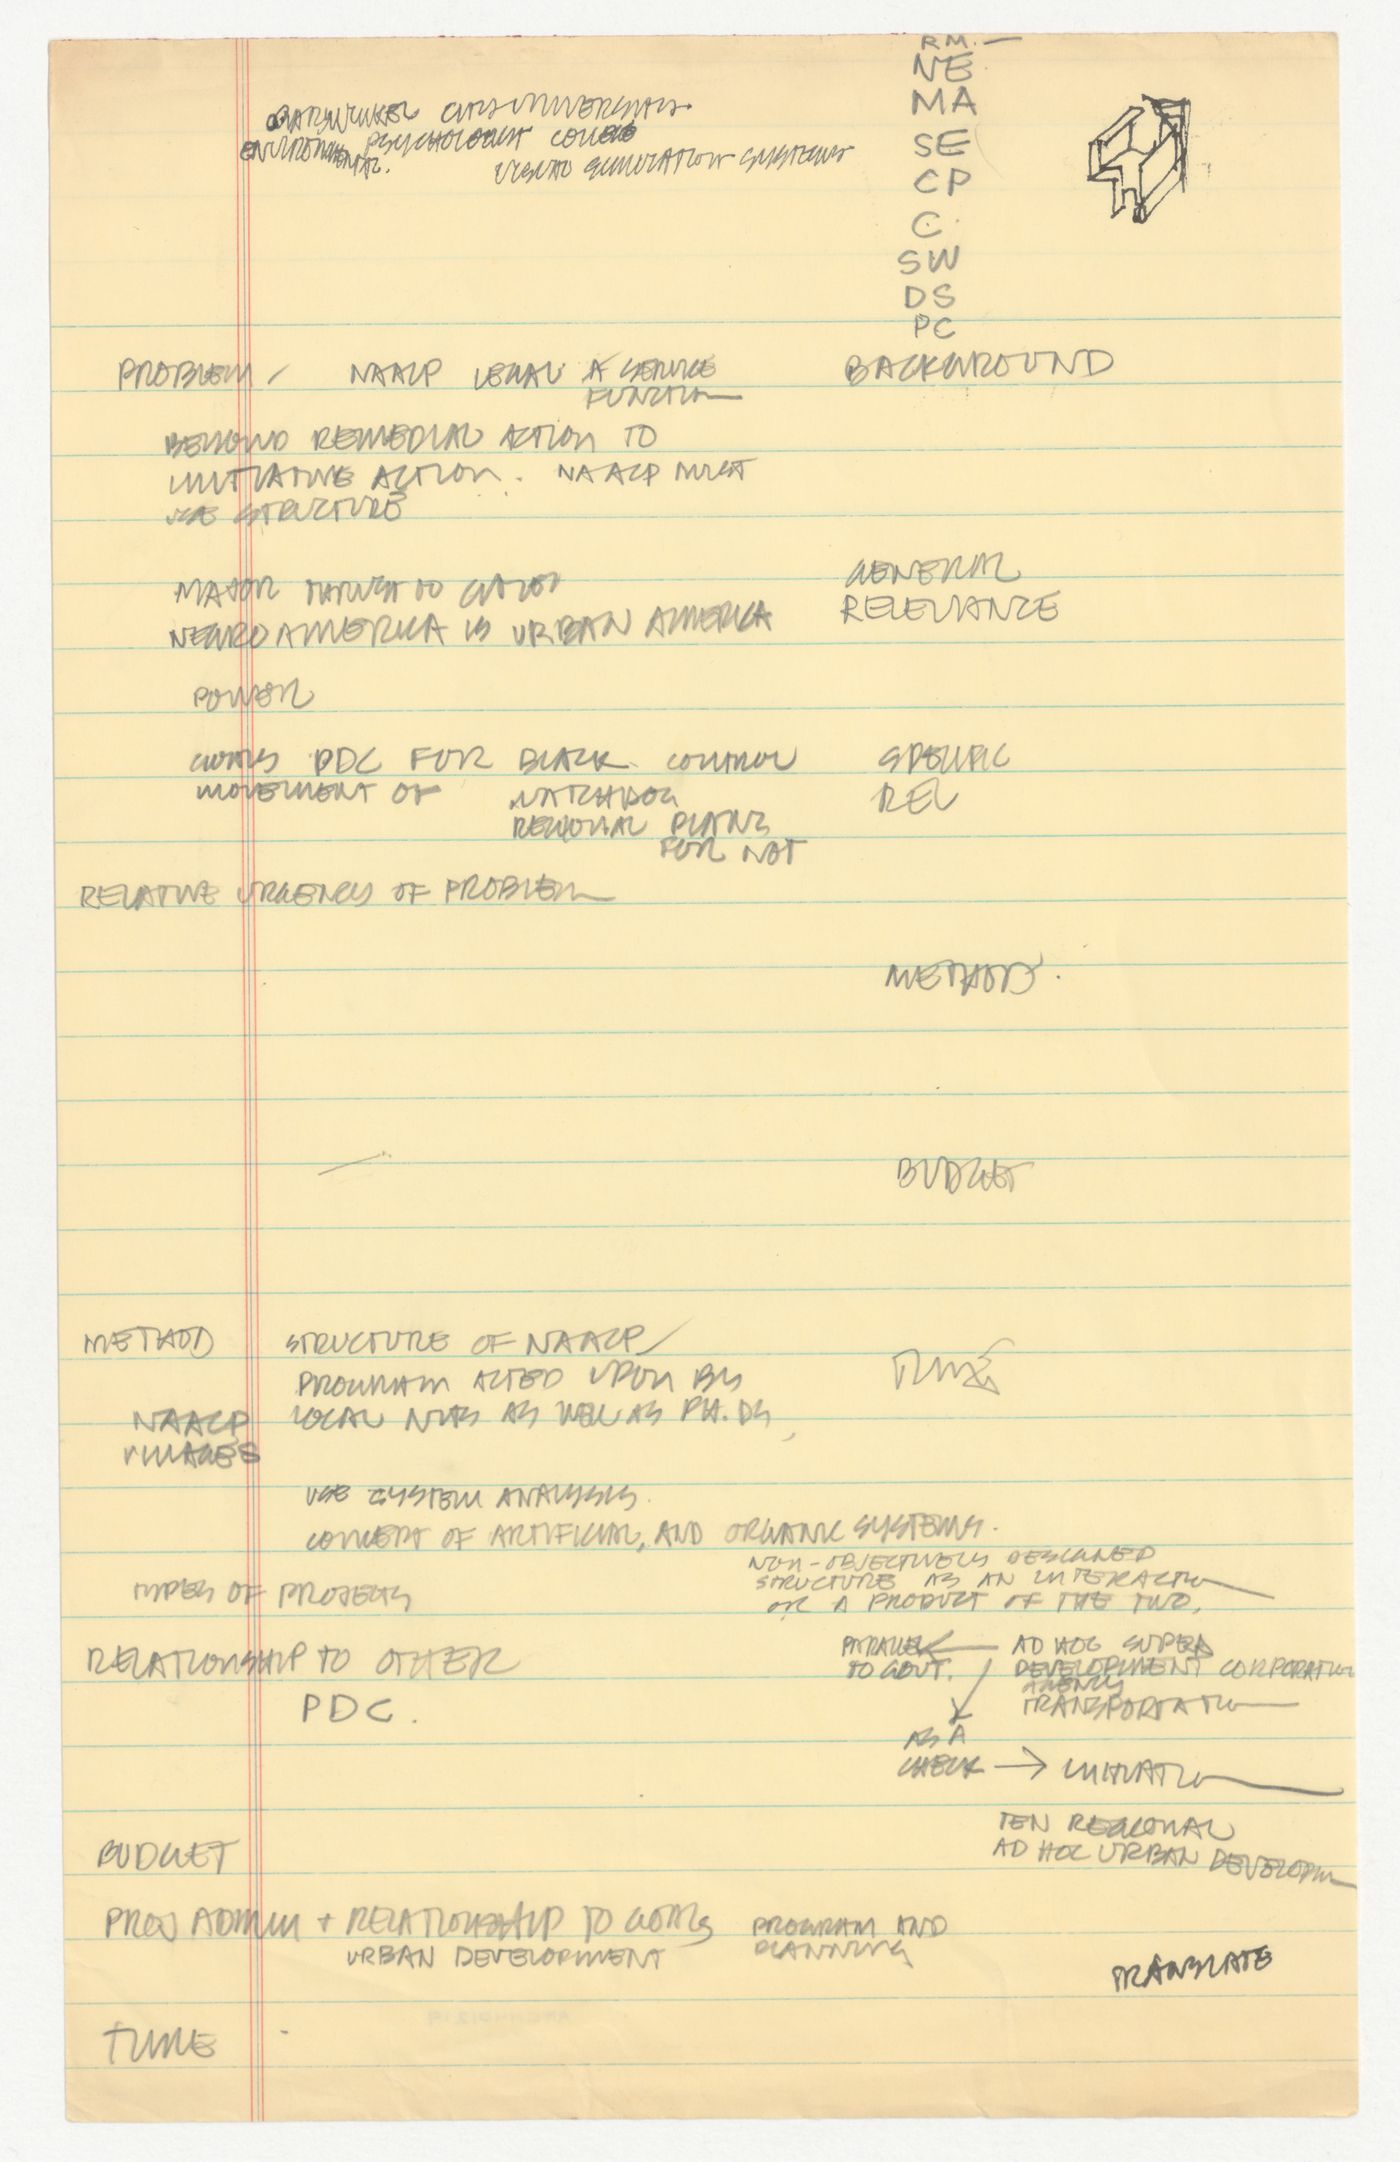 RM.
NE
MA
SE
CP
C.
SW
DS
PC
CITY UNIVERSITY
ENVIRONMENTAL PSYCHOLOGIST COLLEGE
VISUAL SIMULATION SYSTEMS
PROBLEM / NAACP LEGAL A SERVICE
FUNCTION
BACKGROUND
BEYOND REMEDIAL ACTION TO
INITIATIVE ACTION. NAACP MUST
USE STRUCTURE
MAJOR THRUST TO CITIES
NEGRO AMERICA IS URBAN AMERICA
GENERAL
RELEVANCE
POWER
GOALS PDC FOR BLACK CONTROL
MOVEMENT OF WATCHDOG
REGIONAL PLANS
FOR NOT
SPECIFIC
REL
RELATIVE URGENCY OF PROBLEM
METHOD.
BUDGET
METHOD STRUCTURE OF NAACP
PROGRAM ACTED UPON BY
LOCAL AS WELL AS PH.DS,
TIME
NAACP
IMAGES
USE SYSTEM ANALYSIS.
CONCEPT OF ARTIFICIAL, AND ORGANIC SYSTEMS.
NON-OBJECTIVELY DESIGNED
STRUCTURE AS AN INTERACTION
OR A PRODUCT OF THE TWO.
TYPES OF PROJECTS
RELATIONSHIP TO OTHER
PDC.
PARALLEL
TO GOVT.
AD HOC SUPER
DEVELOPMENT CORPORATION
AGENCY
TRANSPORTATION
AS A
CHECK → INITIATION
TEN REGIONAL
AD HOC URBAN DEVELOPM
BUDGET
PROJ ADMIN + RELATIONSHIP TO GOALS
URBAN DEVELOPMENT
PROGRAM AND
PLANNING
TRANSLATE
TIME